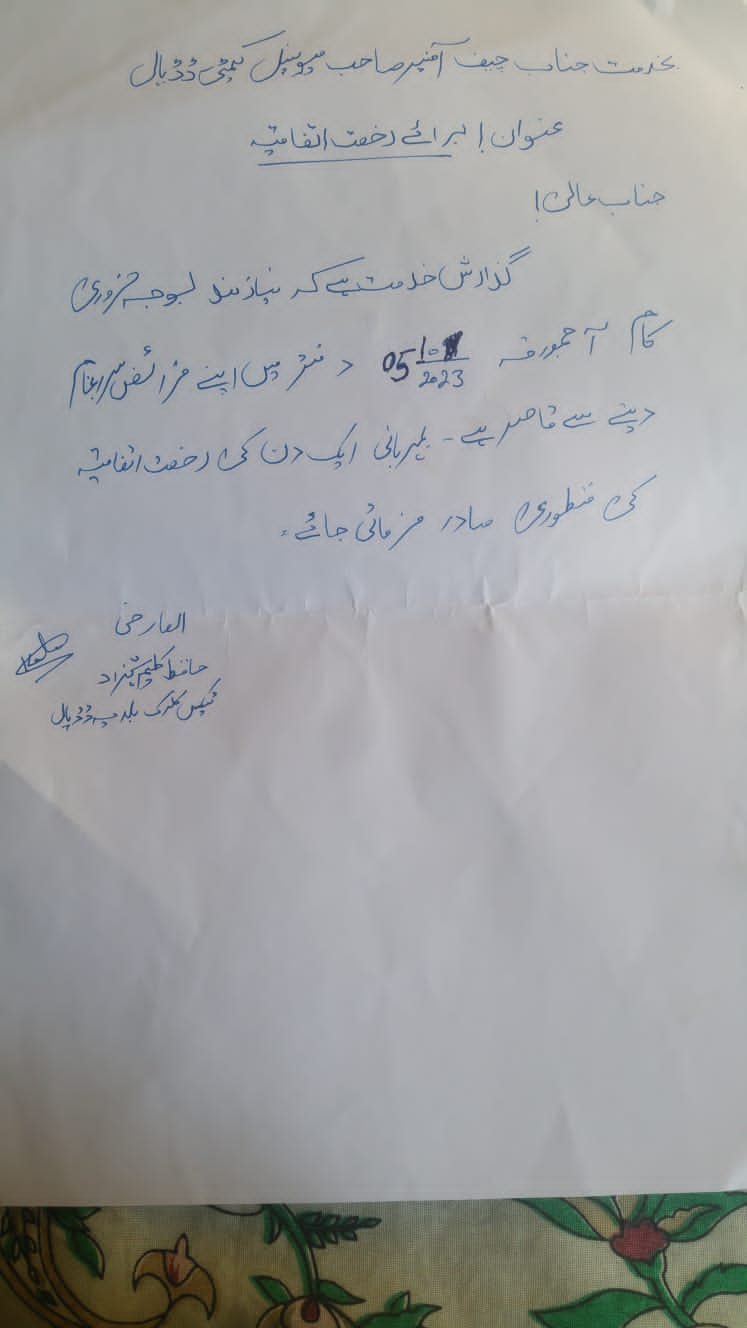 بخدمت جناب چیف آفیسر صاحب میونسپل کمیٹی ڈڈیال
عنوان! برائے رخصت اتفاقیہ
جناب عالی!
گذارش خدمت ہے کہ نیازمند بوجہ ضروری
کام آج مورخہ 05/10/2023 دفتر میں اپنے فرائض سرانجام
دینے سے قاصر ہے۔ بمہربانی ایک دن کی رخصت اتفاقیہ
کی منظوری صادر فرمائی جائے۔
العارض
حافظ کلیم شہزاد
ٹیکس کلرک بلدیہ ڈڈیال